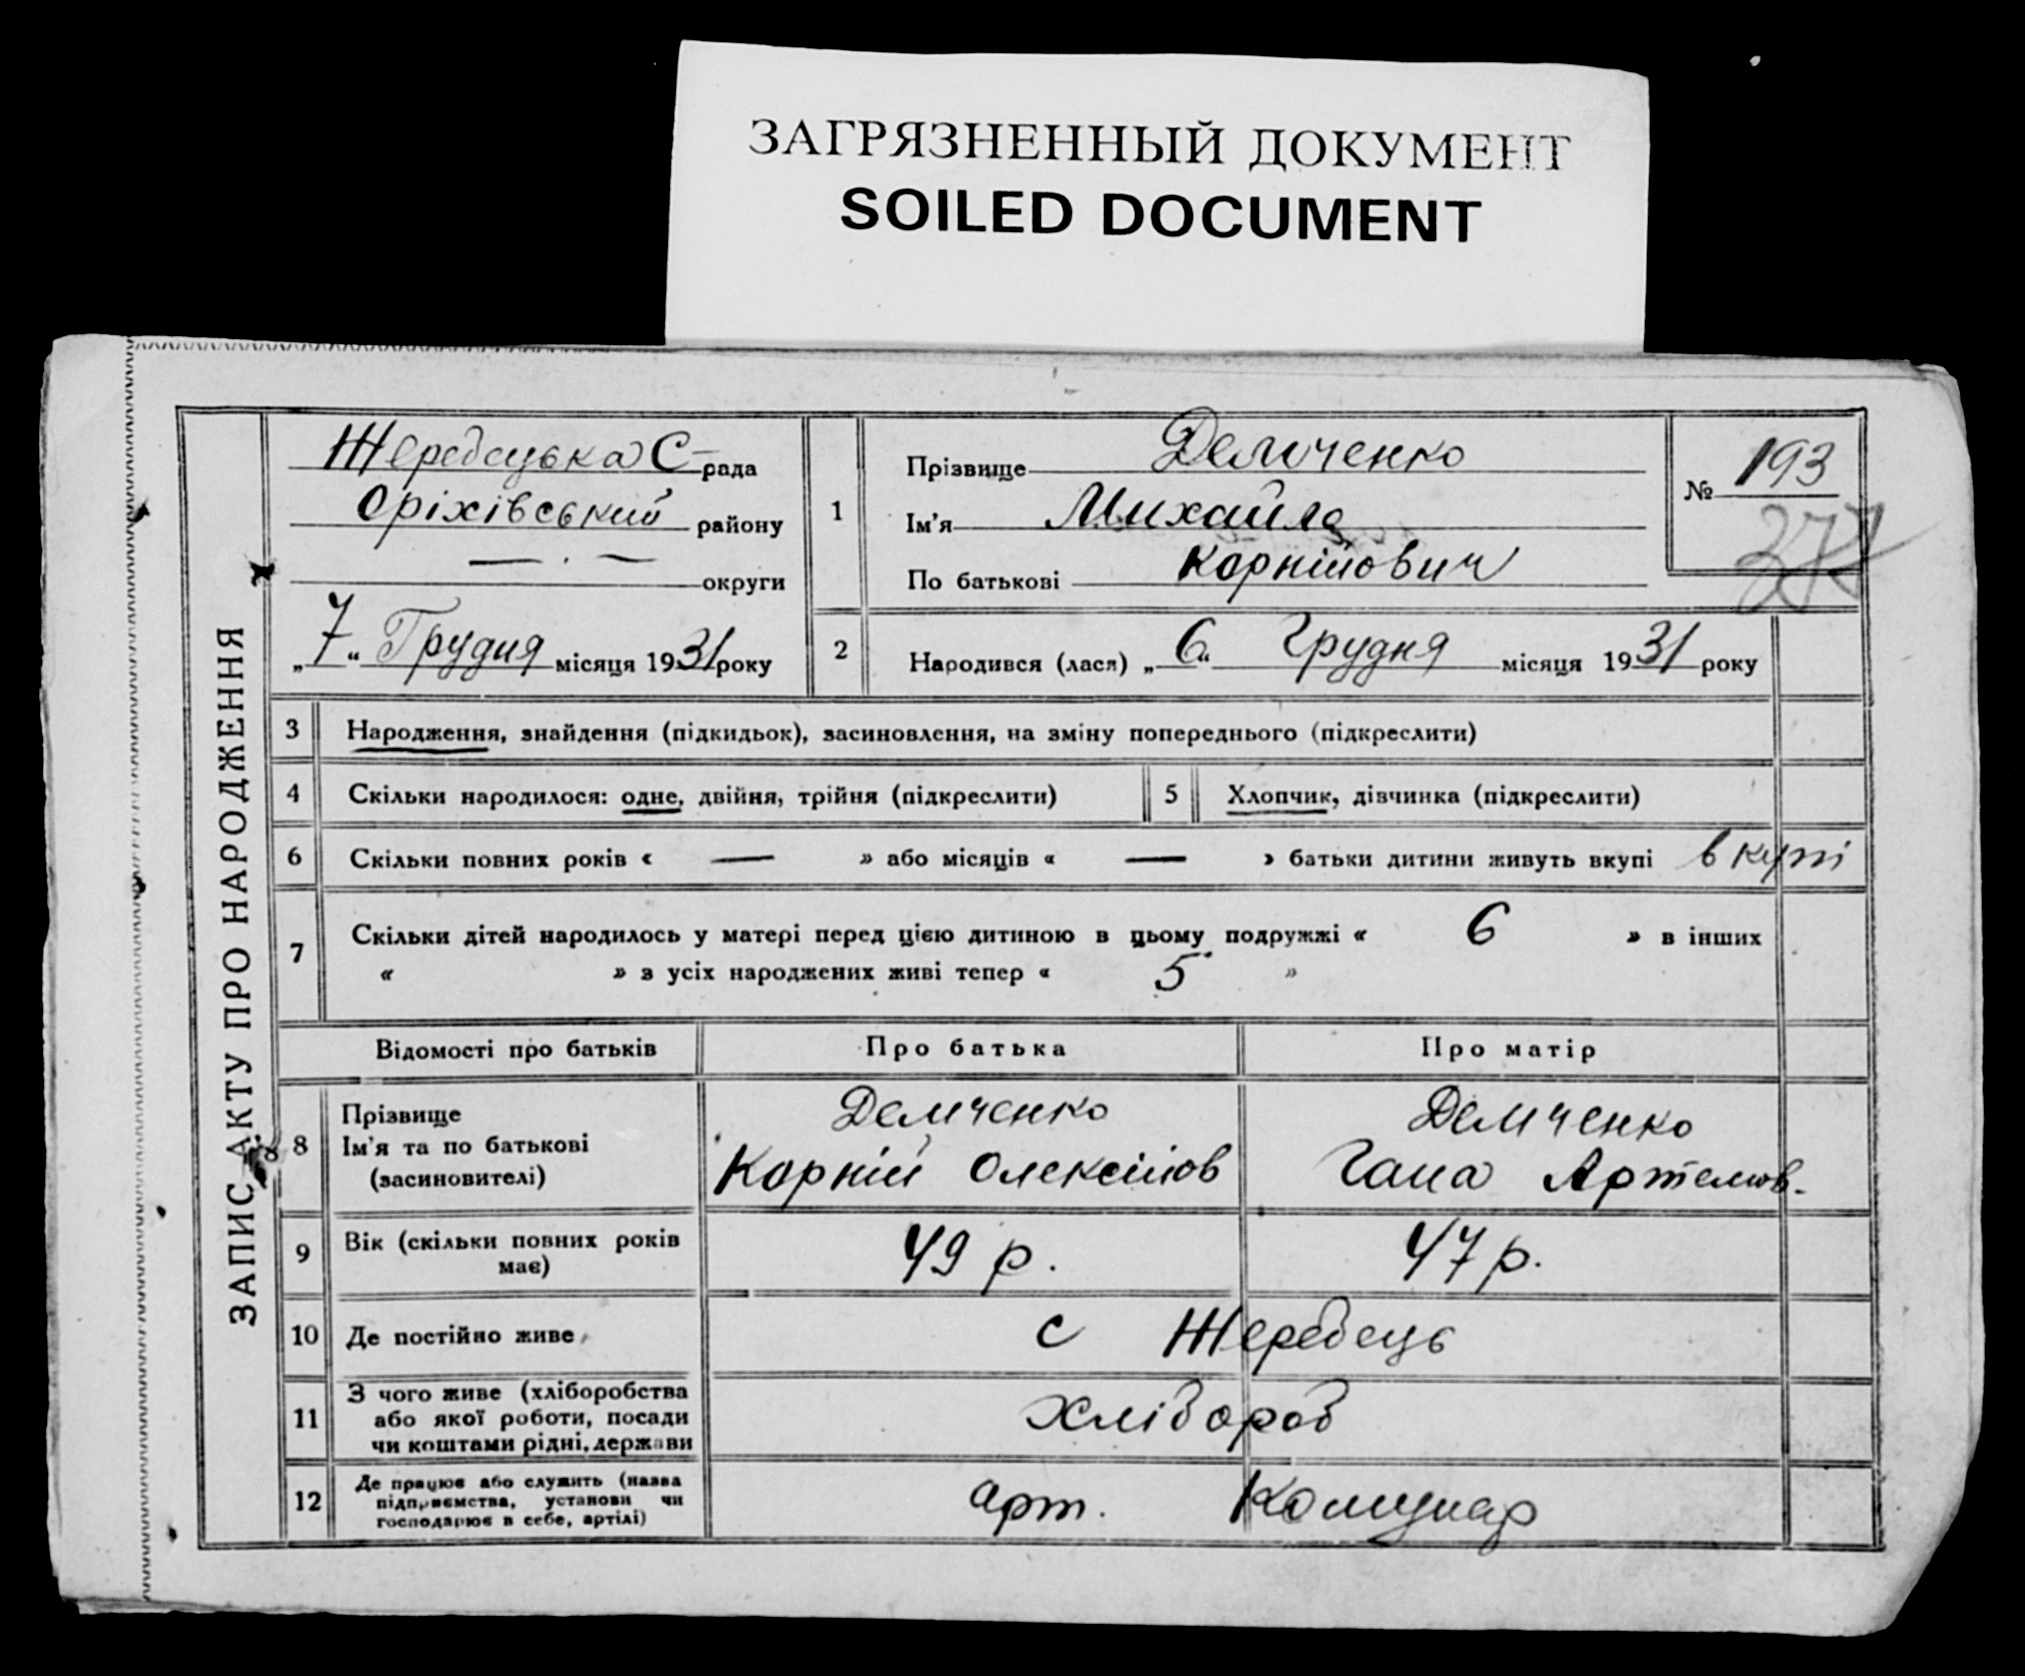 ЗАГРЯЗНЕННЫЙ ДОКУМЕНТ
SOILED DOCUMENT
ЗАПИС АКТУ ПРО НАРОДЖЕННЯ
Жеребецька С- рада
Оріхівський району
— . — округи
„7“ Грудня місяця 1931 року
1
Прізвище Демченко
Ім'я Михайло
По батькові Корнійович
№ 193
277
2 Народився (лася) „6“ Грудня місяця 1931 року
3 Народження, знайдення (підкидьок), засиновлення, на зміну попереднього (підкреслити)
4 Скільки народилося: одне, двійня, трійня (підкреслити)
5 Хлопчик, дівчинка (підкреслити)
6 Скільки повних років « — » або місяців « — » батьки дитини живуть вкупі вкупі
7 Скільки дітей народилось у матері перед цією дитиною в цьому подружжі « 6 » в інших
« » з усіх народжених живі тепер « 5 »
Відомості про батьків Про батька Про матір
8 Прізвище
Ім'я та по батькові
(засиновителі)
Демченко
Корній Олексійов
Демченко
Гана Артемов.
9 Вік (скільки повних років
має)
49 р. 47 р.
10 Де постійно живе с Жеребець
11 З чого живе (хліборобства
або якої роботи, посади
чи коштами рідні, держави
хлібороб
12 Де працює або служить (назва
підприємства, установи чи
господарює в себе, артілі)
арт. Комунар